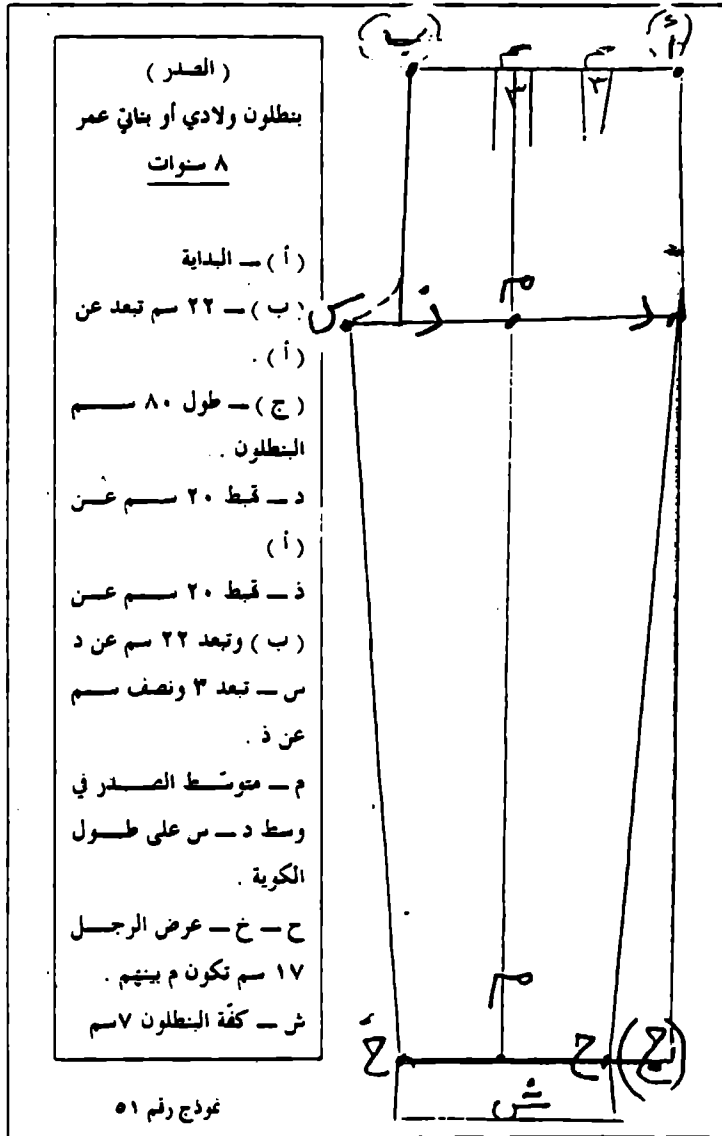 ( الصدر )
بنطلون ولادي أو بناتي عمر
٨ سنوات
( أ ) — البداية
( ب ) — ٢٢ سم تبعد عن
( أ ) .
( ج ) — طول ٨٠ سم
البنطلون .
د — قبط ٢٠ سم عن
( أ )
ذ — قبط ٢٠ سم عن
( ب ) وتبعد ٢٢ سم عن د
س — تبعد ٣ ونصف سم
عن ذ .
م — متوسّط الصدر في
وسط د — س على طول
الكوية .
ح — خ — عرض الرجل
١٧ سم تكون م بينهم .
ش — كفّة البنطلون ٧سم
نموذج رقم ٥١
(أ)
(ب)
٣
٣
س
ذ
م
د
م
خ
ح
(ج)
ش